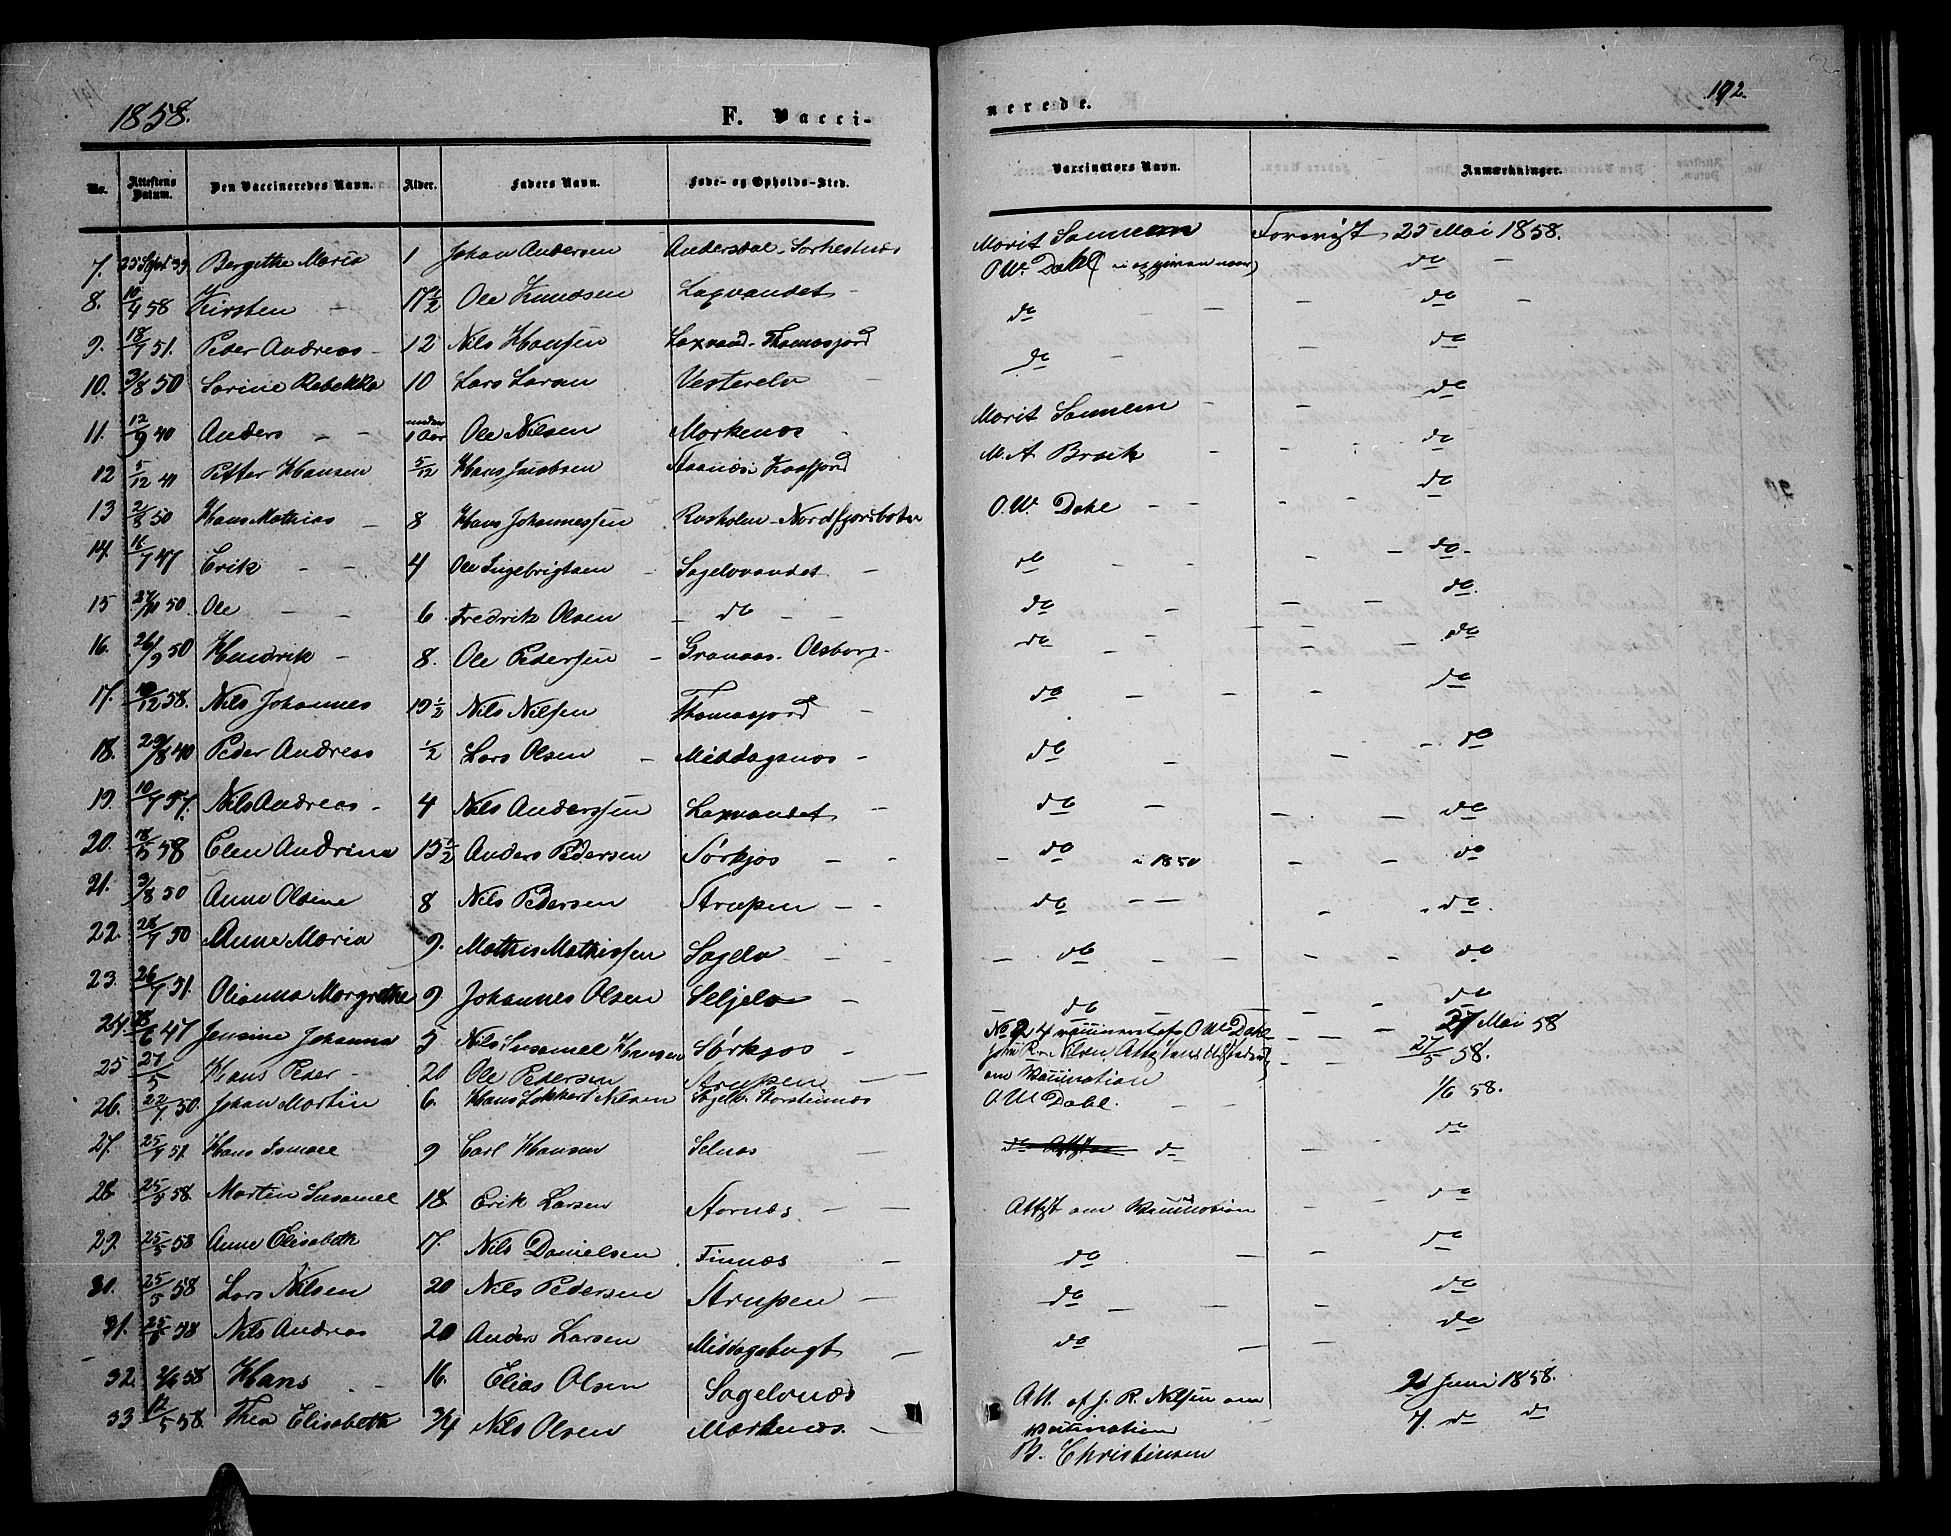 1858. F. Vacci-
nerede. 192.
No. Attestens Datum. Den Vaccineredes Navn. Alder. Faders Navn. Føde- og Opholds-Sted. Vaccinators Navn. Anmærkninger.
7. 25 Sept. 39 Bergitthe Maria 1 Johan Andersen Andersdal Marit Sannem Forevist 25 Mai 1858.
8. 10/4 58 Kirsten - 17 1/2 Ole Knudsen Laxvandet - O. W. Dahl do -
9. 18/7 51. Peder Andreas - 12 Nils Hansen Laxvand - Thomasjord do - - do -
10. 3/8 50 Sorine Rebekka 10 Lars Larsen Vesterelv - do - do
11. 12/9 40 Anders - - under 1 Aar Ole Nilsen Markenæs - Marit Sannem - - do
12 5/12 41 Petter Hansen 5/12 Hans Jacobsen M. A. Brock - - do
13 2/8 50 Hans Mathias - 8 Hans Johannessen - Nordfjordbotn O. W. Dahl - - - do
14. 16/7 47 Erik - - 4 Ole Ingebrigtsen - Sagelvvandet - do - - - - do -
15 27/11 50. Ole - - 6. Fredrik Olsen - do - - do - - - do.
16. 26/9 50 Hendrik - 8. Ole Pedersen - Granaas. Olsborg - do - - do
17. 10/12 58. Nils Johannes 19 1/2 Nils Nilsen Thomasjord - do - - - do
18. 29/8 40 Peder Andreas 1/2 Lars Olsen - Middagsnæs - do - - - do
19. 10/7 57. Nils Andreas - 4 Nils Anderssen Laxvandet - do - - - do
20. 18/5 58 Elen Andrina 15 1/2 Anders Pedersen Sørkjos - - - do i 1850 - - do
21. 3/8 50 Anne Olsine 8 Nils Pedersen Strupen - - do - - - do.
22. 28/7 50 Anne Maria 9. Mathis Mathissen Sagelv - - - do - - - - do
23. 26/7 51. Olianna Margrethe 9 Johannes Olsen Seljelv - - do - - - do
24. 28/6 47 Jensine Johanna 5 Nils Susamel Hansen Sørkjos - No 24 vaccineret af O. W. Dahl - - 27 Mai 58
25 27/5 Hans Peder - 20 Ole Pedersen Strupen - - - 27/5 58.
om Vaccination
26. 22/7 50. Johan Martin 6. Hans Lokkert Nilsen Sagelv. Storsteinnæs O. W. Dahl. - - 1/6 58.
27. 25/7 51. Hans Ismael 9 Carl Hansen Selnæs - do - do
28. 25/5 58. Martin Susamel 18. Erik Larsen Stornæs. - - Attest om Vaccination - - do
29. 25/5 58 Anne Elisabeth 17. Nils Danielsen. Finnæs - do - - do
31. 25/5 58 Lars Nilsen 20 Nils Pedersen Strupen - do - - do
31. 25/5 58 Nils Andreas 20 Anders Larsen Middagsbugt - do - - do
32. 2/6 58 Hans - 16. Elias Olsen Sagelvnæs Att. af J. R. Nilsen om 2 Juni 1858.
Vaccination
33 12/5 58. Thea Elisabeth 3/4 Nils Olsen Markenæs. - B. Christensen 7. do do